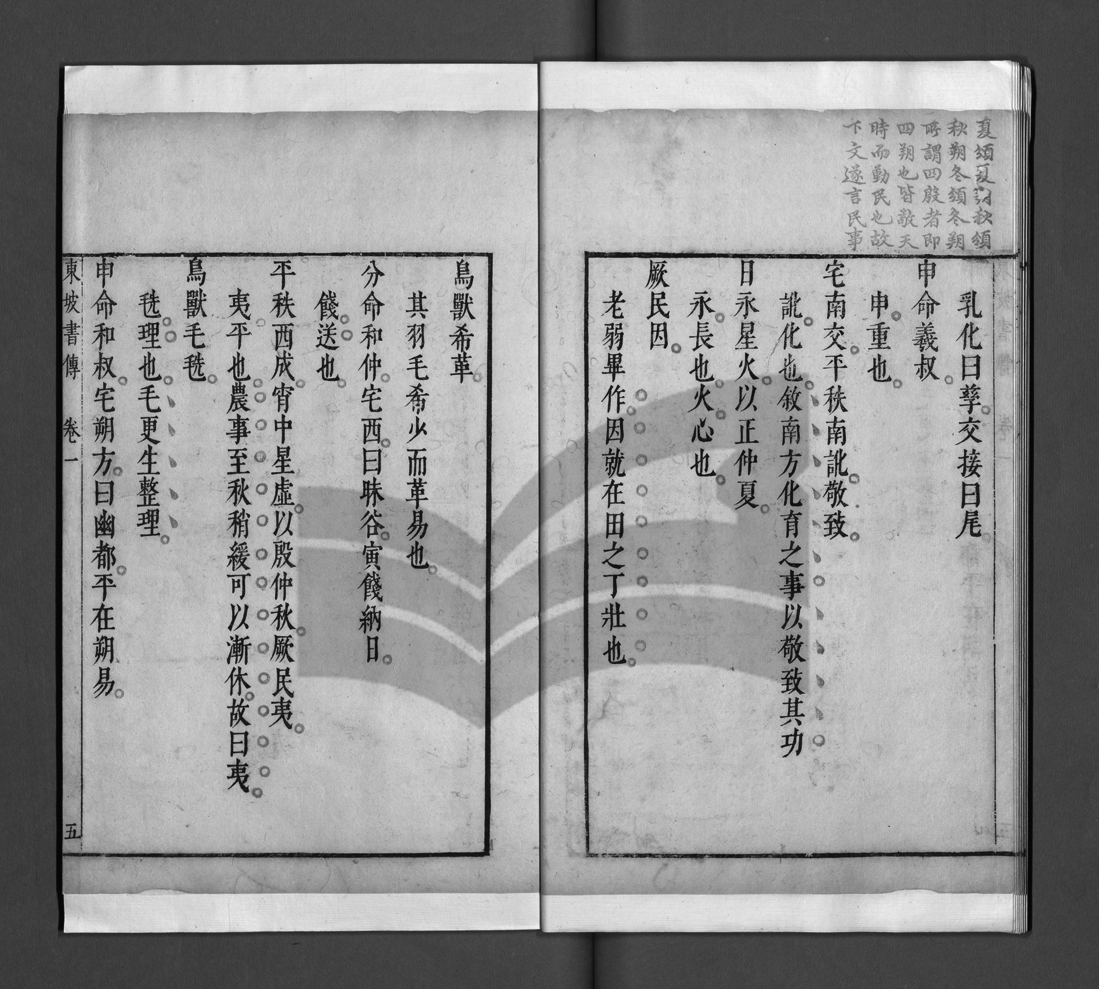 夏頌夏朔秋頌
秋朔冬頌冬朔
所謂四殷者即
四朔也皆敬天
時而勤民也故
下文遂言民事
乳化曰孳交接曰尾
申命羲叔
申重也
宅南交平秩南訛敬致
訛化也敘南方化育之事以敬致其功
日永星火以正仲夏
永長也火心也
厥民因
老弱畢作因就在田之丁壯也
鳥獸希革
其羽毛希少而革易也
分命和仲宅西曰昧谷寅餞納日
餞送也
平秩西成宵中星虛以殷仲秋厥民夷
夷平也農事至秋稍緩可以漸休故曰夷
鳥獸毛毨
毨理也毛更生整理
申命和叔宅朔方曰幽都平在朔易
東坡書傳 卷一 五